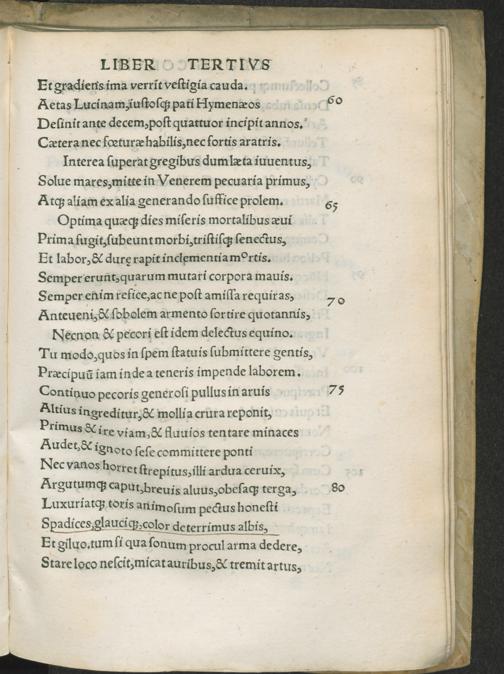 LIBER TERTIVS
Et gradiens ima verrit vestigia cauda.
Aetas Lucinam, iustosq; pati Hymenæos 60
Desinit ante decem, post quattuor incipit annos.
Cætera nec fœturæ habilis, nec fortis aratris.
Interea superat gregibus dum læta iuuentus,
Solue mares, mitte in Venerem pecuaria primus,
Atq; aliam ex alia generando suffice prolem. 65
Optima quæq; dies miseris mortalibus æui
Prima fugit, subeunt morbi, tristisq; senectus,
Et labor, & durę rapit inclementia mortis.
Semper erunt, quarum mutari corpora mauis.
Semper enim refice, ac ne post amissa requiras, 70
Anteueni, & sobolem armento sortire quotannis,
Necnon & pecori est idem delectus equino.
Tu modo, quos in spem statuis submittere gentis,
Præcipuū iam inde a teneris impende laborem.
Continuo pecoris generosi pullus in aruis 75
Altius ingreditur, & mollia crura reponit,
Primus & ire viam, & fluuios tentare minaces
Audet, & ignoto sese committere ponti
Nec vanos horret strepitus, illi ardua ceruix,
Argutumq; caput, breuis aluus, obesaq; terga, 80
Luxuriatq; toris animosum pectus honesti
Spadices, glauciq;, color deterrimus albis,
Et giluo. tum si qua sonum procul arma dedere,
Stare loco nescit, micat auribus, & tremit artus,